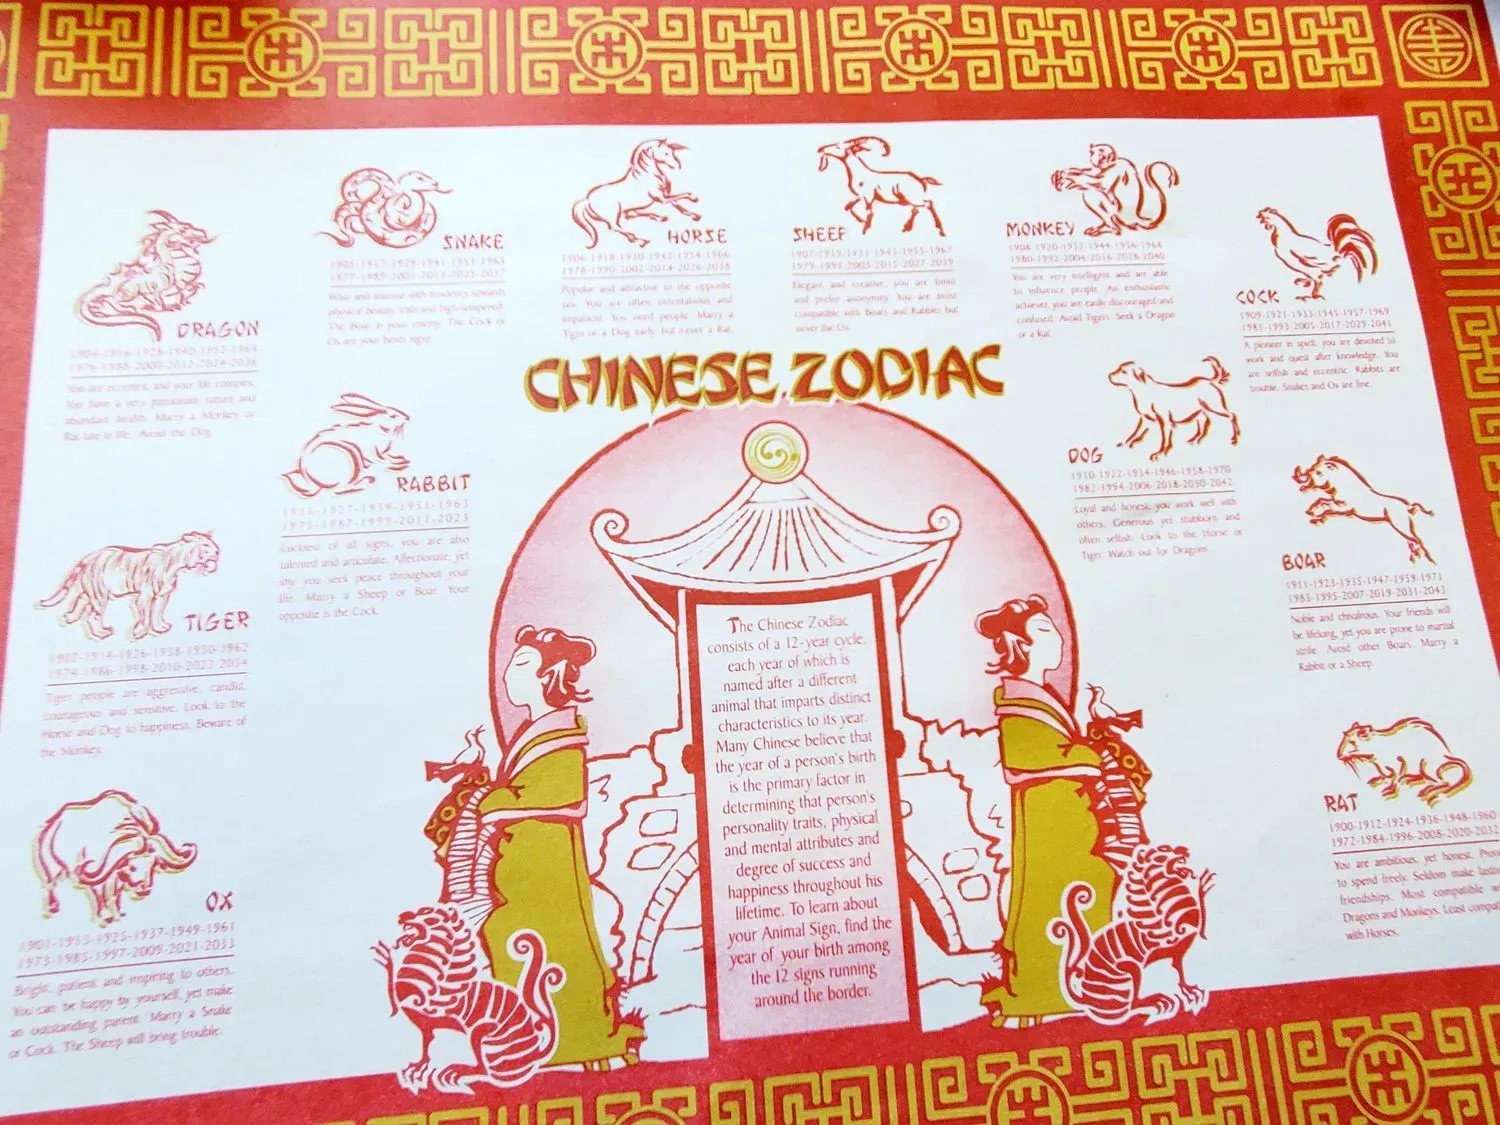 CHINESE ZODIAC
The Chinese Zodiac
consists of a 12-year cycle,
each year of which is
named after a different
animal that imparts distinct
characteristics to its year.
Many Chinese believe that
the year of a person's birth
is the primary factor in
determining that person's
personality traits, physical
and mental attributes and
degree of success and
happiness throughout his
lifetime. To learn about
your Animal Sign, find the
year of your birth among
the 12 signs running
around the border.
DRAGON
1904-1916-1928-1940-1952-1964
1976-1988-2000-2012-2024-2036
You are eccentric and your life complex.
You have a very passionate nature and
abundant health. Marry a Monkey or
Rat late in life. Avoid the Dog.
SNAKE
1905-1917-1929-1941-1953-1965
1977-1989-2001-2013-2025-2037
Wise and intense with tendency towards
physical beauty. Vain and high-tempered.
The Boar is your enemy. The Cock or
Ox are your best signs.
HORSE
1906-1918-1930-1942-1954-1966
1978-1990-2002-2014-2026-2038
Popular and attractive to the opposite
sex. You are often ostentatious and
impatient. You need people. Marry a
Tiger or a Dog early, but never a Rat.
SHEEP
1907-1919-1931-1943-1955-1967
1979-1991-2003-2015-2027-2039
Elegant and creative, you are timid
and prefer anonymity. You are most
compatible with Boars and Rabbits but
never the Ox.
MONKEY
1908-1920-1932-1944-1956-1968
1980-1992-2004-2016-2028-2040
You are very intelligent and are able
to influence people. An enthusiastic
achiever, you are easily discouraged and
confused. Avoid Tigers. Seek a Dragon
or a Rat.
COCK
1909-1921-1933-1945-1957-1969
1981-1993-2005-2017-2029-2041
A pioneer in spirit, you are devoted to
work and quest after knowledge. You
are selfish and eccentric. Rabbits are
trouble. Snakes and Ox are fine.
RABBIT
1915-1927-1939-1951-1963
1975-1987-1999-2011-2023
Luckiest of all signs, you are also
talented and articulate. Affectionate, yet
shy, you seek peace throughout your
life. Marry a Sheep or Boar. Your
opposite is the Cock.
DOG
1910-1922-1934-1946-1958-1970
1982-1994-2006-2018-2030-2042
Loyal and honest, you work well with
others. Generous yet stubborn and
often selfish. Look to the Horse or
Tiger. Watch out for Dragons.
TIGER
1902-1914-1926-1938-1950-1962
1974-1986-1998-2010-2022-2034
Tiger people are aggressive, candid,
courageous and sensitive. Look to the
Horse and Dog to happiness. Beware of
the Monkey.
BOAR
1911-1923-1935-1947-1959-1971
1983-1995-2007-2019-2031-2043
Noble and chivalrous. Your friends will
be lifelong, yet you are prone to marital
strife. Avoid other Boars. Marry a
Rabbit or a Sheep.
OX
1901-1913-1925-1937-1949-1961
1973-1985-1997-2009-2021-2033
Bright, patient and inspiring to others.
You can be happy by yourself, yet make
an outstanding parent. Marry a Snake
or Cock. The Sheep will bring trouble.
RAT
1900-1912-1924-1936-1948-1960
1972-1984-1996-2008-2020-2032
You are ambitious, yet honest. Prone
to spend freely. Seldom make lasting
friendships. Most compatible
Dragons and Monkeys. Least
with Horses.